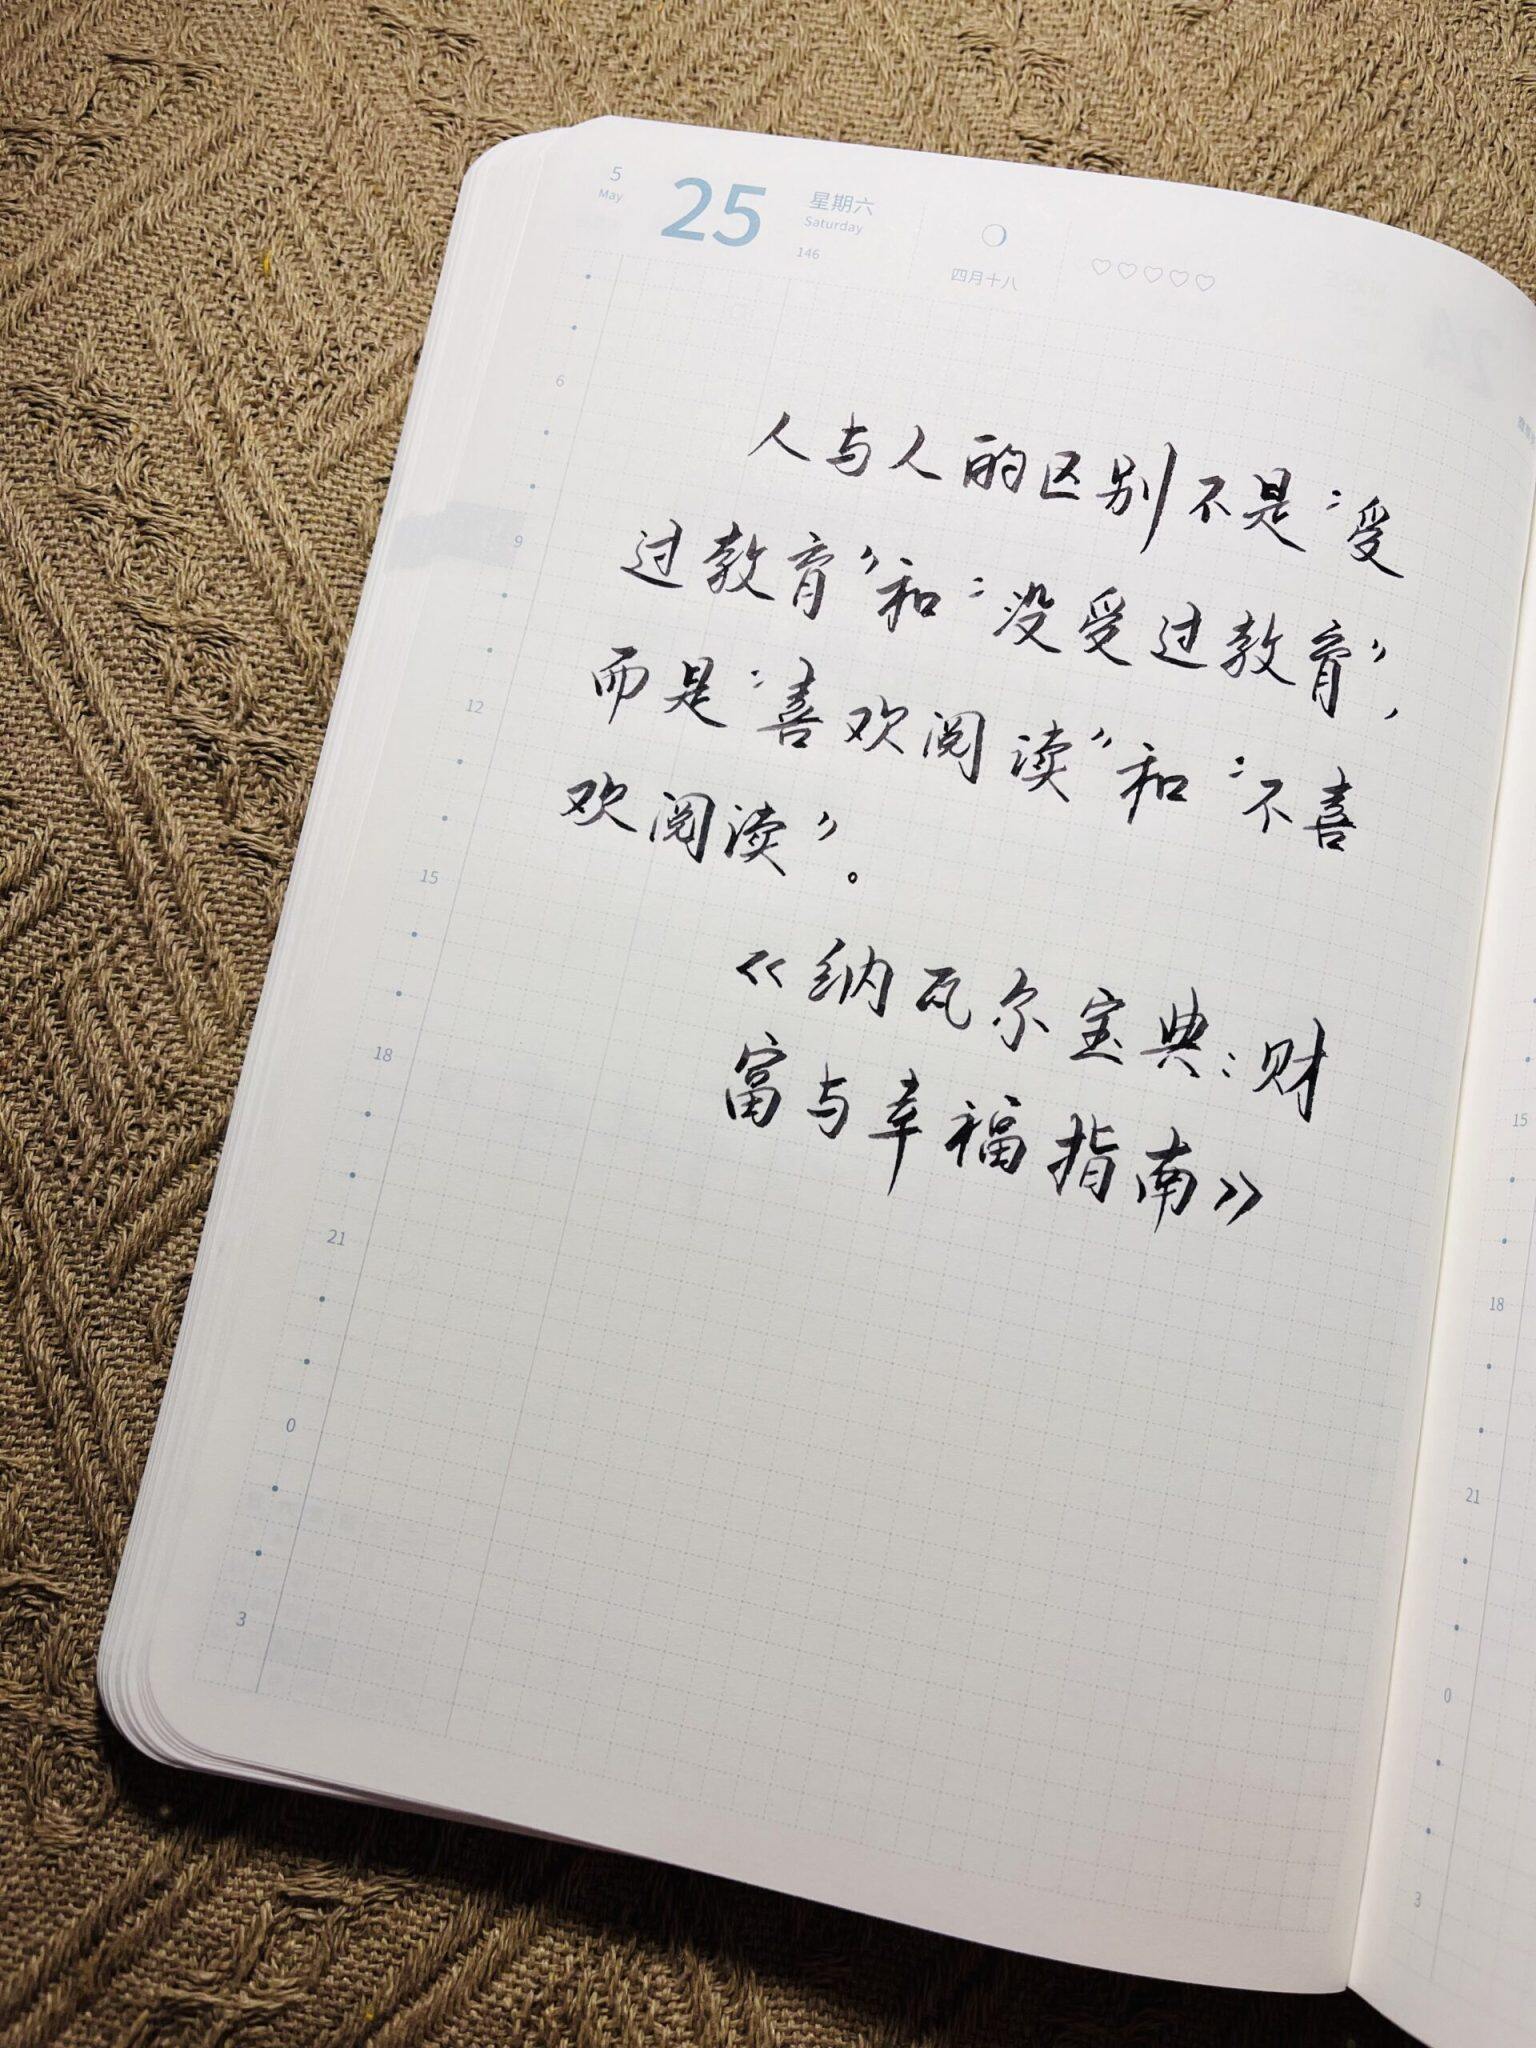 5
May
25
星期六
Saturday
146
四月十八
人与人的区别不是“受
过教育”和“没受过教育”，
而是“喜欢阅读”和“不喜
欢阅读”。
《纳瓦尔宝典：财
富与幸福指南》
6
9
12
15
18
21
0
3
15
18
21
0
3